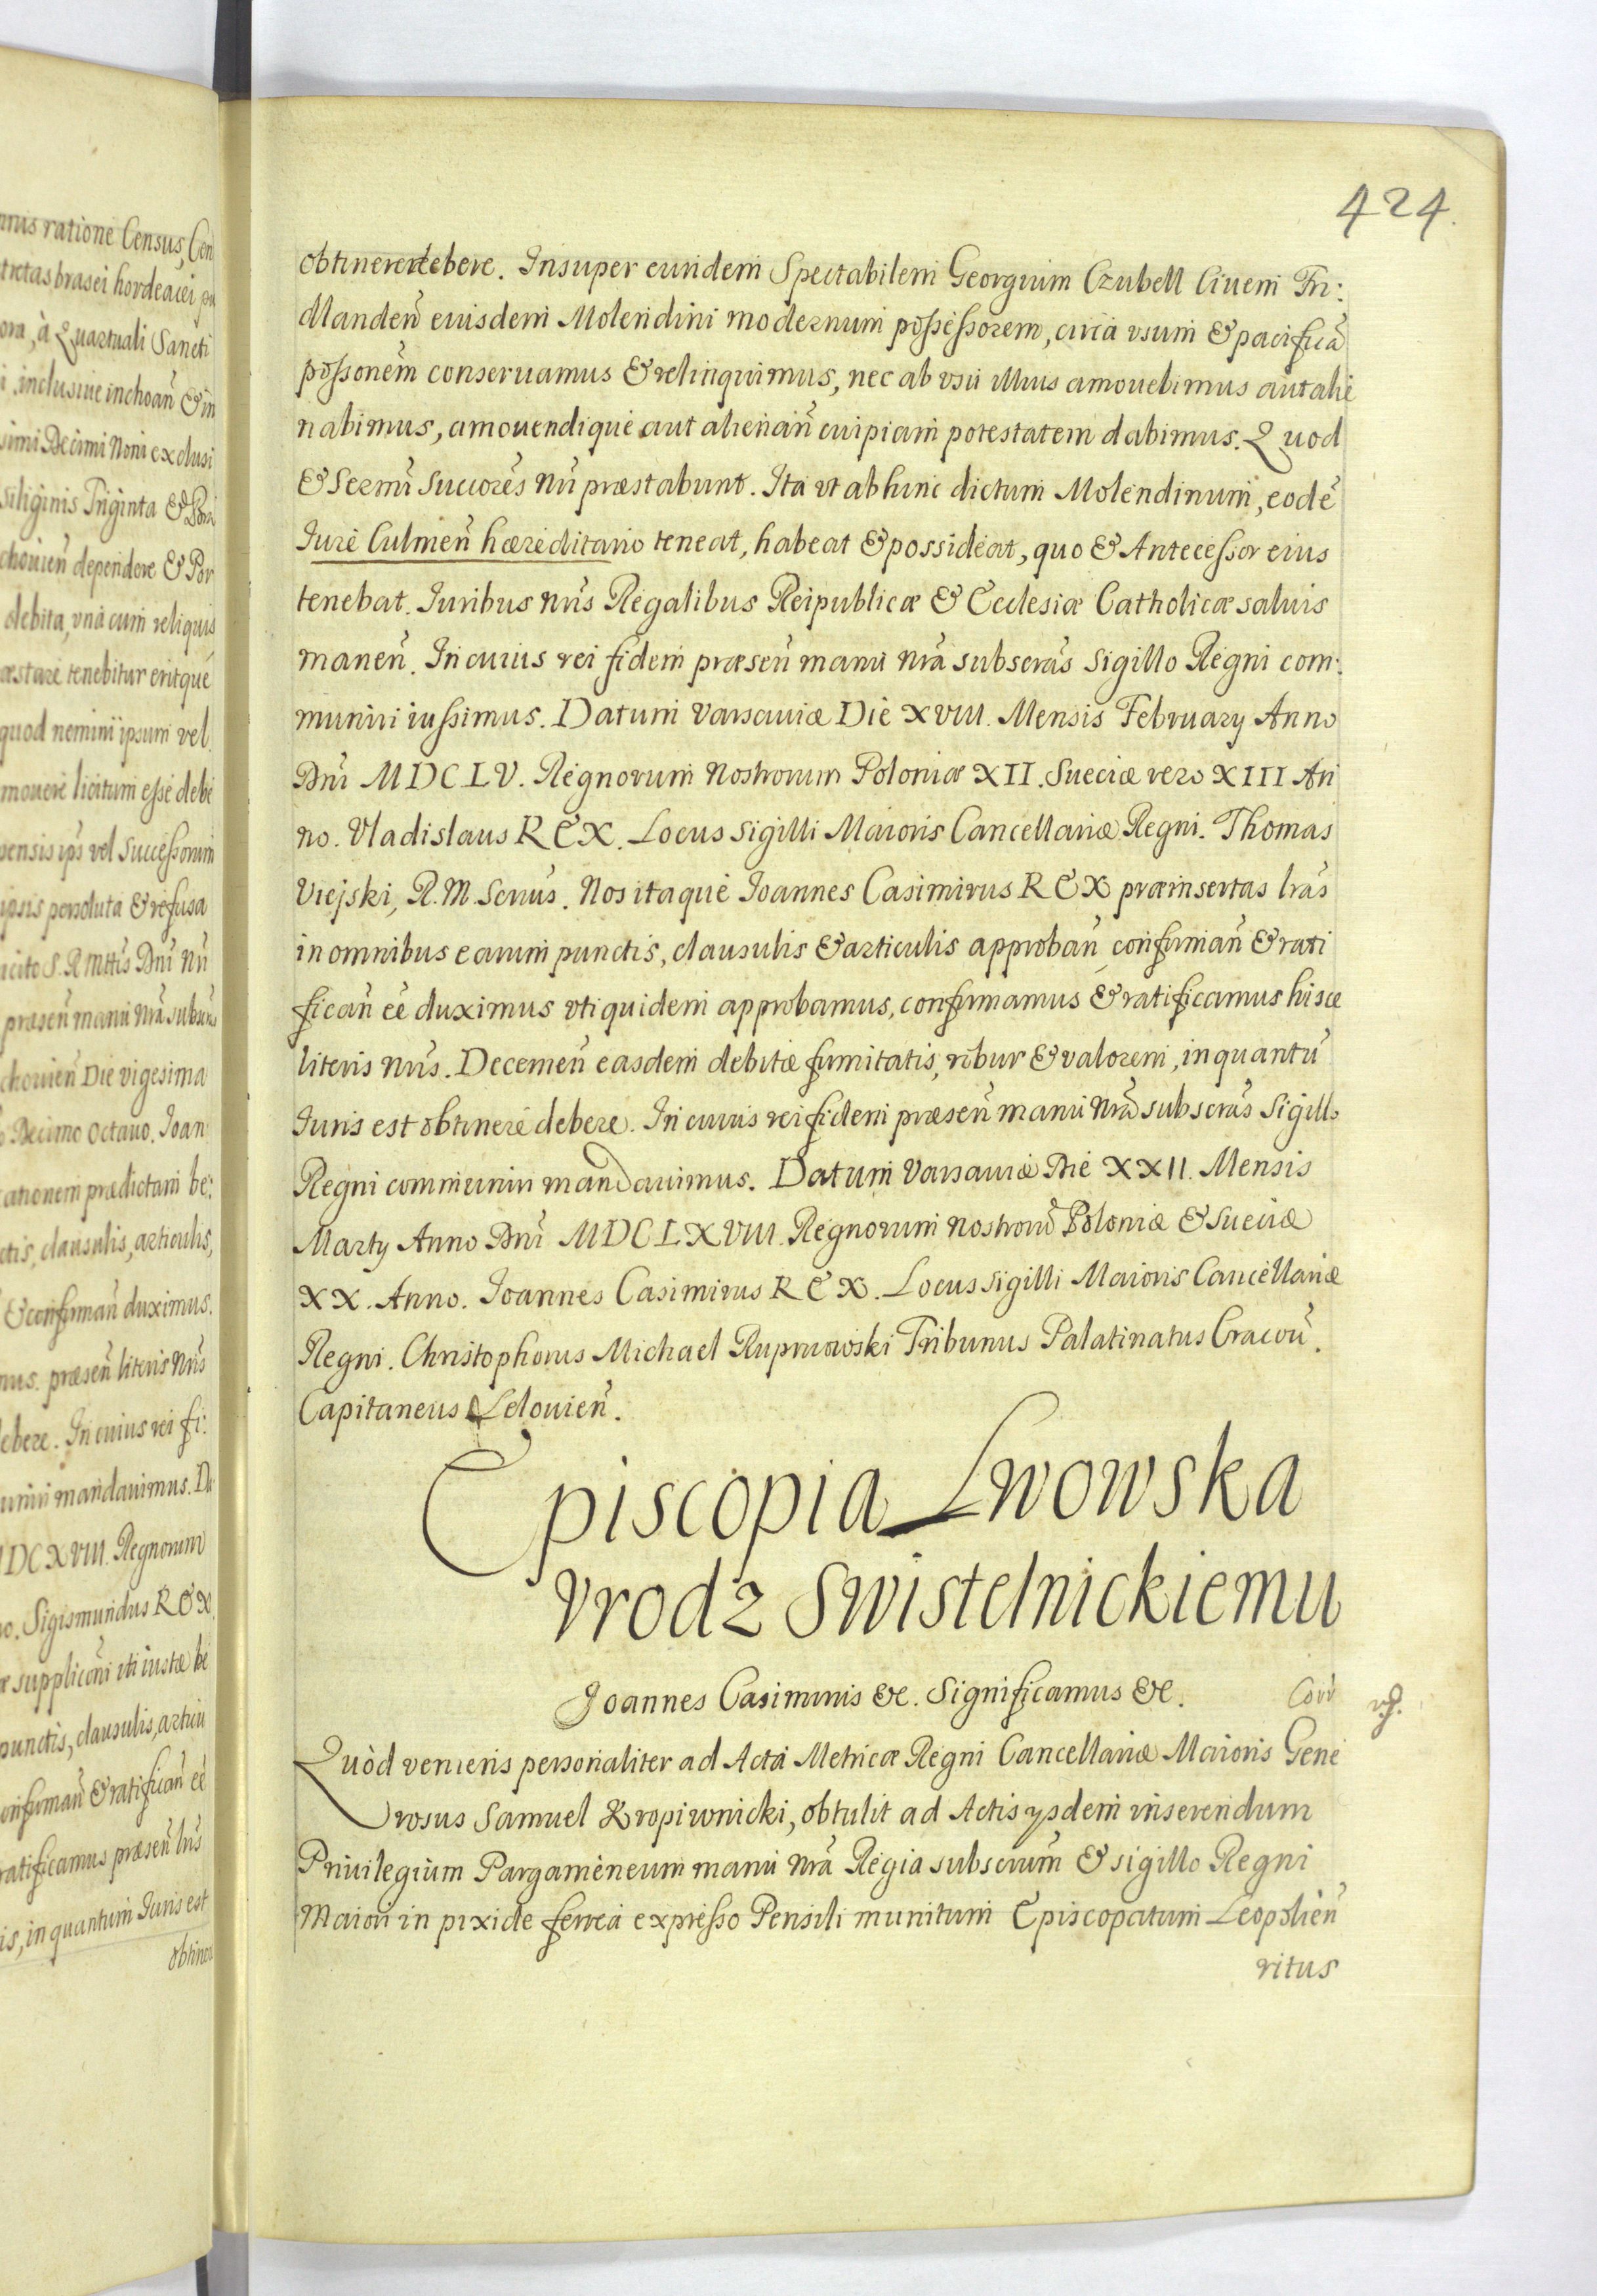 nnus ratione Census, Cen
tretas brasei hordeacei
ora, à Quartuali Sancti
i inclusive inchoan̄ & in
simi Decimi Noni exclusi
siliginis Triginta &
chouien̄ dependere & Por
debita, vnà cum reliquis
æstare tenebitur eritque
quod nemini ipsum vel
mouere licitum esse debe
pensis ips̄ vel Successorum
ipsis persoluta & refusa
icito S. R. Mttis Dn̄i Nr̄i
præsen̄ manu Nr̄a
chouien̄ Die vigesima
Decimo octauo. Joan
ationem prædictam be:
ctis, clausulis, articulis,
& confirman̄ duximus.
mus. præsen̄ literis Nr̄is
debere. In cuius rei fi:
uniri mandauimus. Da
MDCXVIII. Regnorum
no. Sigismundus REX
supplicōni vti iustæ be
punctis, clausulis, articu
onfirman̄ & ratifican̄ eē
ratificamus præsen̄ lr̄is
is, in quantum Iuris est
obtinere
424.
obtinere debere. Insuper eundem Spectabilem Georgium Czubell Ciuem Fri:
dlanden̄ eiusdem Molendini modernum possessorem, circa vsum & pacificā
possonēm conseruamus & relinquimus, nec ab vsu illius amouebimus aut alie
nabimus, amouendique aut alienan̄ cuipiam potestatem dabimus. Quod
& Serm̄i Succores̄ Nr̄i præstabunt. Ita vt abhinc dictum Molendinum, eodē
Iure Culmen̄ hæreditario teneat, habeat & possideat, quo & Antecessor eius
tenebat. Iuribus Nr̄is Regalibus Reipublicæ & Ecclesiæ Catholicæ saluis
manen̄. In cuius rei fidem præsen̄ manu Nr̄a subscrās Sigillo Regni com:
muniri iussimus. Datum Varsauiæ Die XVIII. Mensis February Anno
Dn̄i MDCLV. Regnorum Nostrorum Poloniæ XII. Sueciæ vero XIII An
no. Vladislaus REX. Locus Sigilli Maioris Cancellariæ Regni. Thomas
Viejski, R. M. Scrius̄. Nos itaque Joannes Casimirus REX præinsertas lrās
in omnibus earum punctis, clausulis & articulis approban̄, confirman̄ & rati
fican̄ eē duximus vti quidem approbamus, confirmamus & ratificamus hisce
literis Nr̄is. Decernen̄ easdem debitæ firmitatis, robur & valorem, in quantū
Iuris est obtinere debere. In cuius rei fidem præsen̄ manu Nr̄a subscrās Sigillo
Regni communiri mandauimus. Datum Varsauiæ Die XXII. Mensis
Marty Anno Dn̄i MDCLXVIII. Regnorum Nostrorū Poloniæ & Sueciæ
XX. Anno. Joannes Casimirus REX. Locus Sigilli Maioris Cancellariæ
Regni. Christophorus Michael Rupniowski Tribunus Palatinatus Cracou̅.
Capitaneus Lelouien̄.
Episcopia Lwowska
Vrodz Swistelnickiemu
Joannes Casimirus &c. Significamus &c.
Quòd veniens personaliter ad Acta Metricæ Regni Cancellariæ Maioris Gene
rosus Samuel Kropiwnicki, obtulit ad Actis ysdem inserendum
Priuilegium Pargameneum manu Nr̄a Regia subscrūm & sigillo Regni
Maiori in pixide ferrea expresso Pensili munitum Episcopatum Leopolien̄
ritus